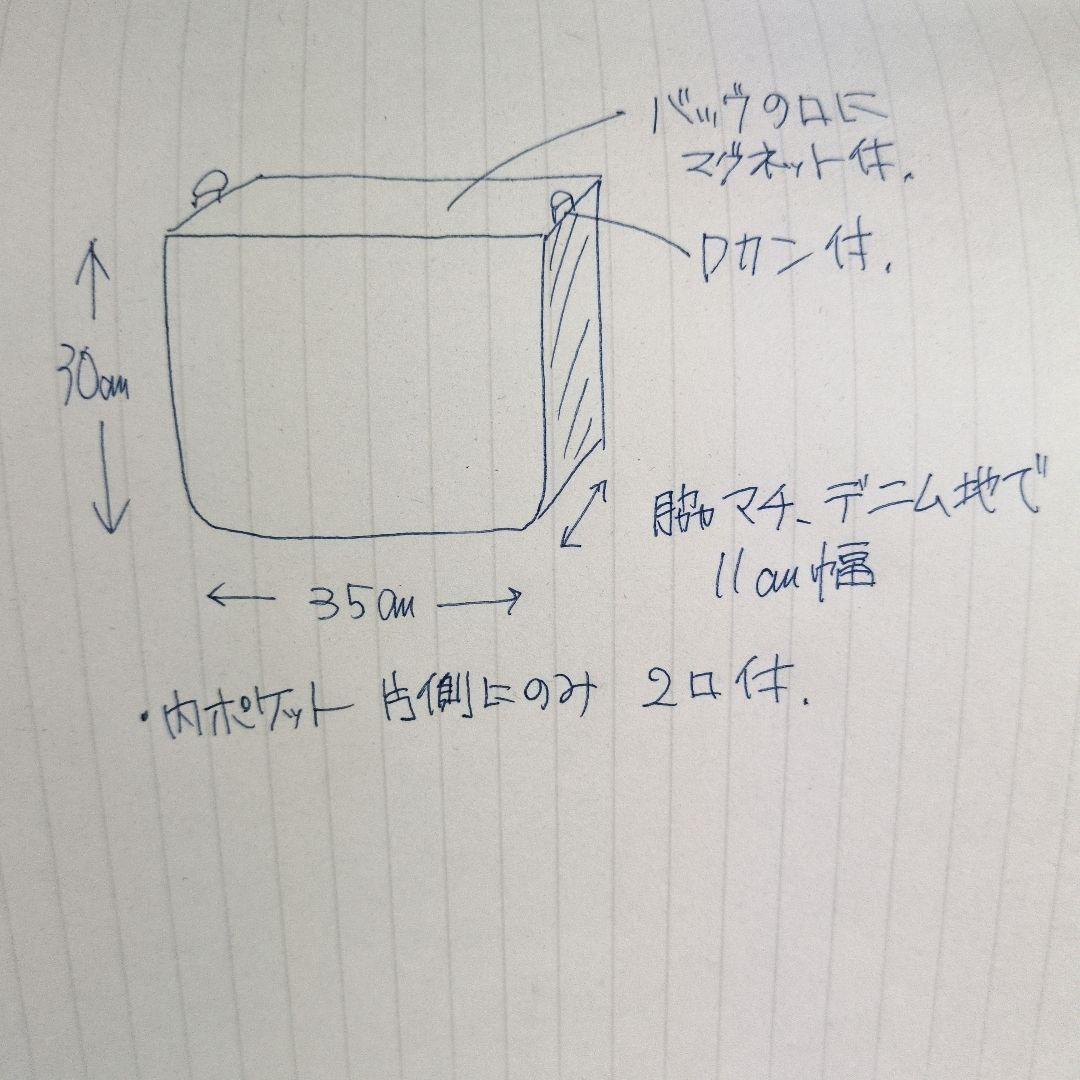 バッグの口に
マグネット付.
Dカン付.
30cm
脇マチ、デニム地で
11cm幅
35cm
・内ポケット 片側にのみ 2口付.